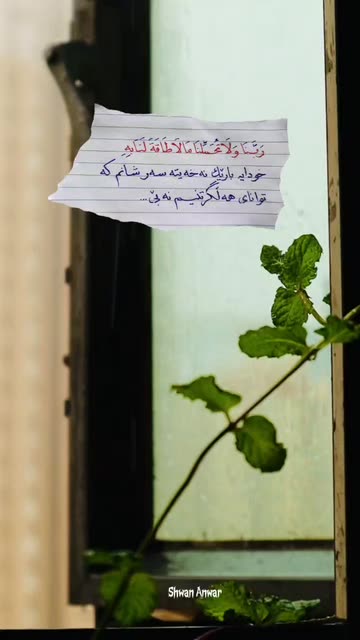 رَبَّنَا وَلَا تُحَمِّلْنَا مَا لَا طَاقَةَ لَنَا بِهِ
خودایە بارێك نەخەیتە سەر شانم کە
توانای هەڵگرتنیم نەبێ...
Shwan Anwar